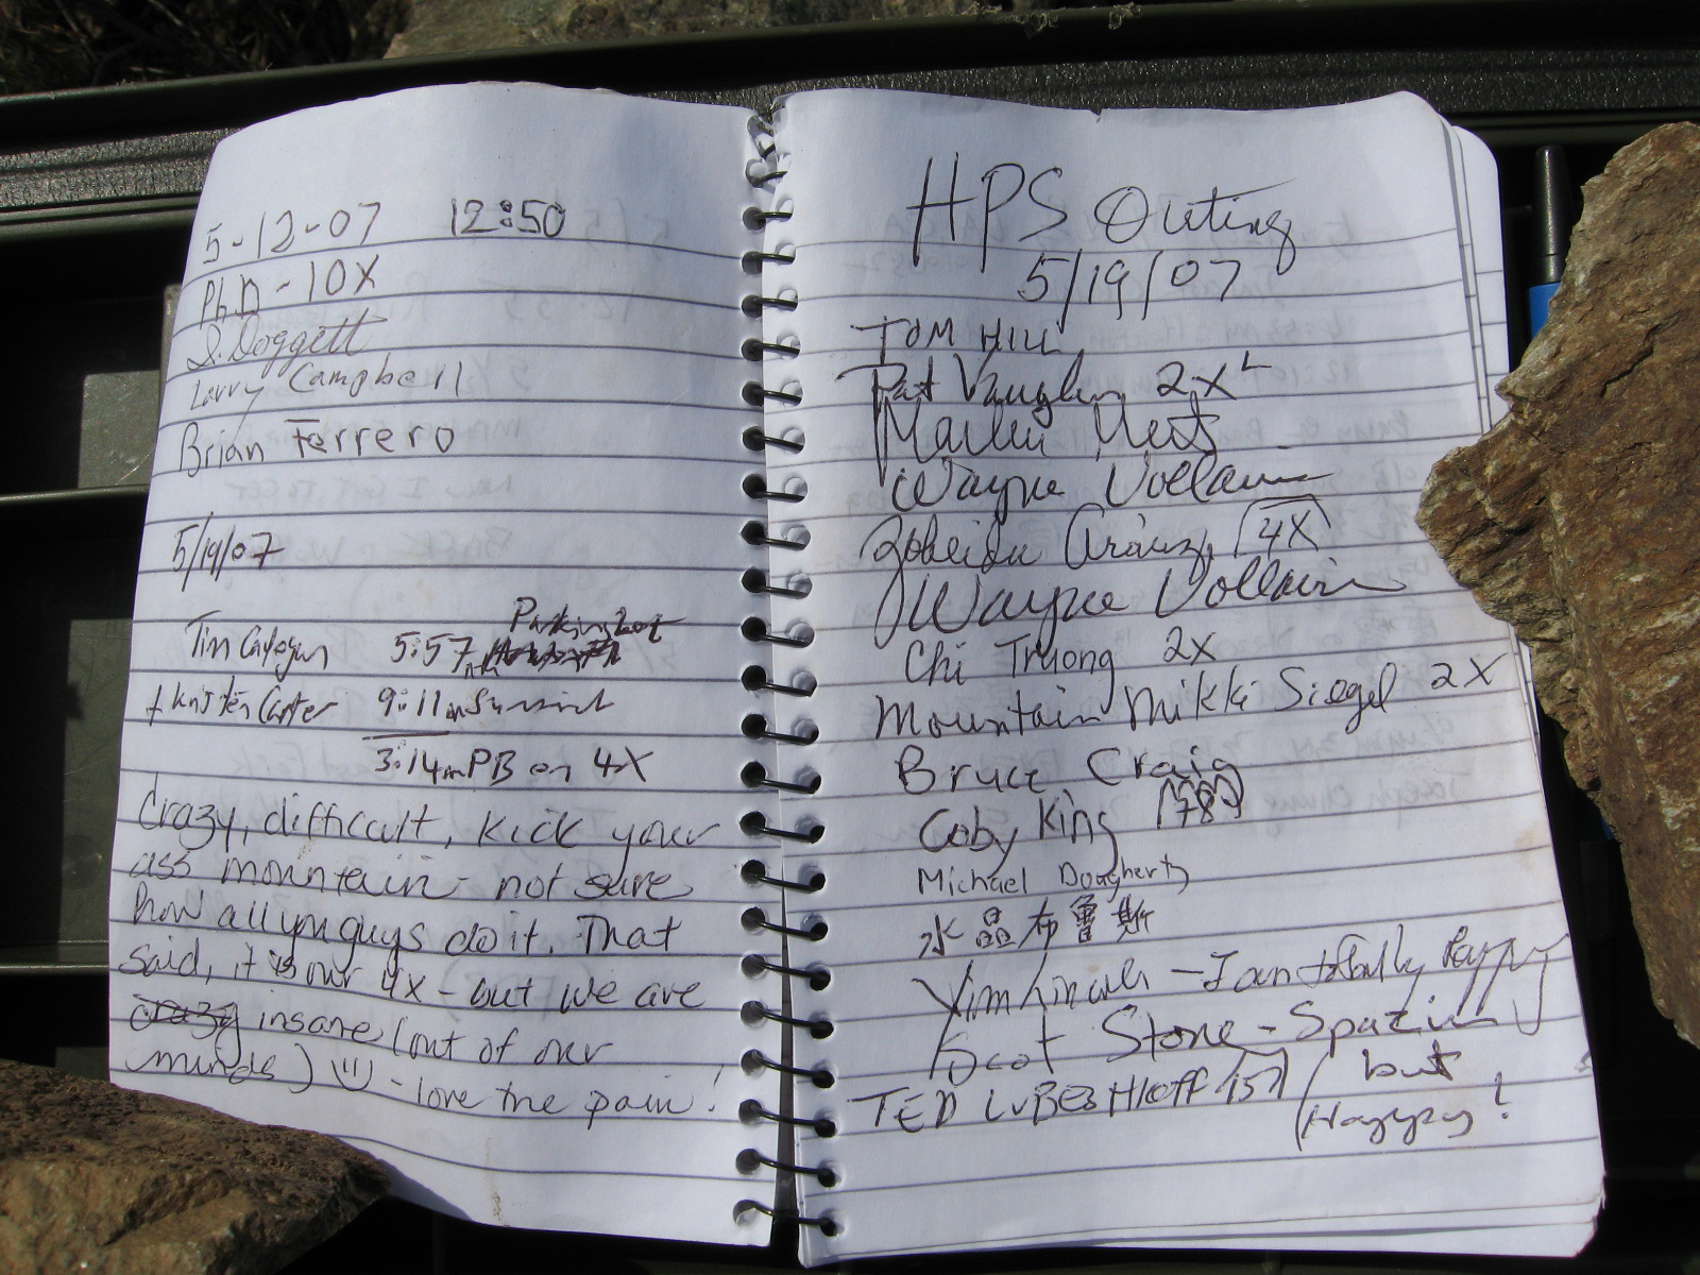 5-12-07 12:50
Ph.D - 10X
S. Doggett
Larry Campbell
Brian Ferrero
5/19/07
Parking Lot
Tim 5:57
+ Kristen Carter 9:11 Summit
3:14 PB on 4X
Crazy, difficult, kick your
ass mountain - not sure
how all you guys do it. That
said, it is our 4x - but we are
crazy insane (out of our
minds) - love the pain!
HPS Outing
5/19/07
TOM HILL
Pat Vaughn 2X
Wayne Vollaire
Zobeida Aráuz, 4X
Wayne Vollaire
Chi Truong 2X
Mountain Mikki Siegel 2X
Bruce Craig
Coby King (78)
Michael Dougherty
水晶布魯斯
- I am totally happy
Scot Stone - Spazin
but
TED LUBESHKOFF 157
Happy!